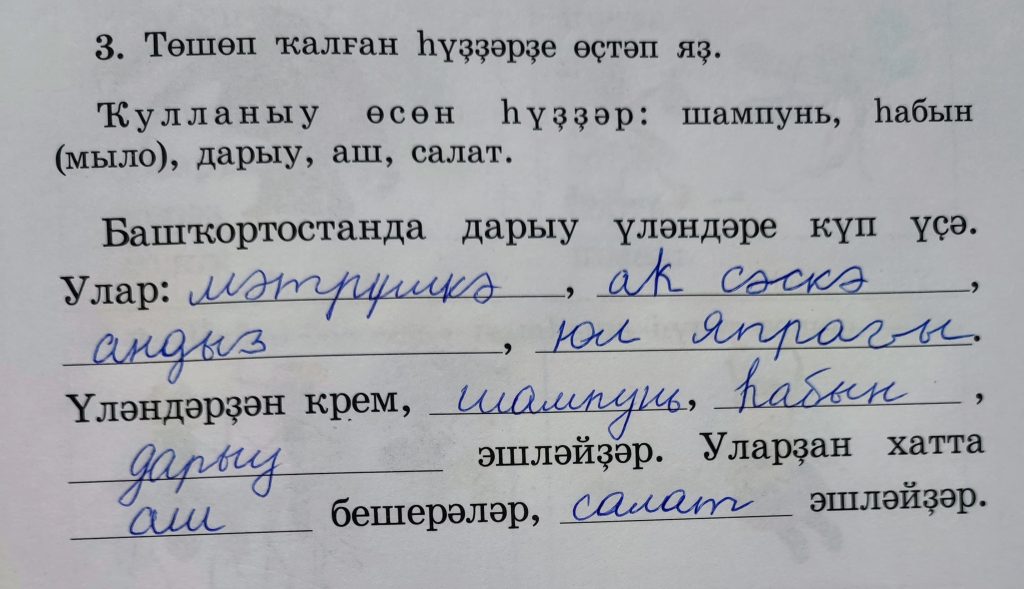 3. Төшөп ҡалған һүҙҙәрҙе өҫтәп яҙ.
Ҡулланыу өсөн һүҙҙәр: шампунь, һабын
(мыло), дарыу, аш, салат.
Башҡортостанда дарыу үләндәре күп үҫә.
Улар: мәтрүшкә, ак сәскә,
андыз, юл япрагы.
Үләндәрҙән крем, шампунь, һабын,
дарыу эшләйҙәр. Уларҙан хатта
аш бешерәләр, салат эшләйҙәр.